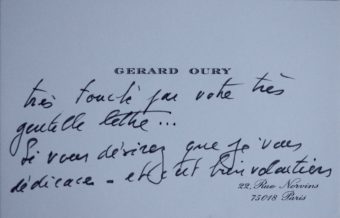 GERARD OURY
très touché par votre très
gentille lettre...
Si vous désirez que je vous
dédicace - et c'est bien volontiers
22, Rue Norvins
75018 Paris